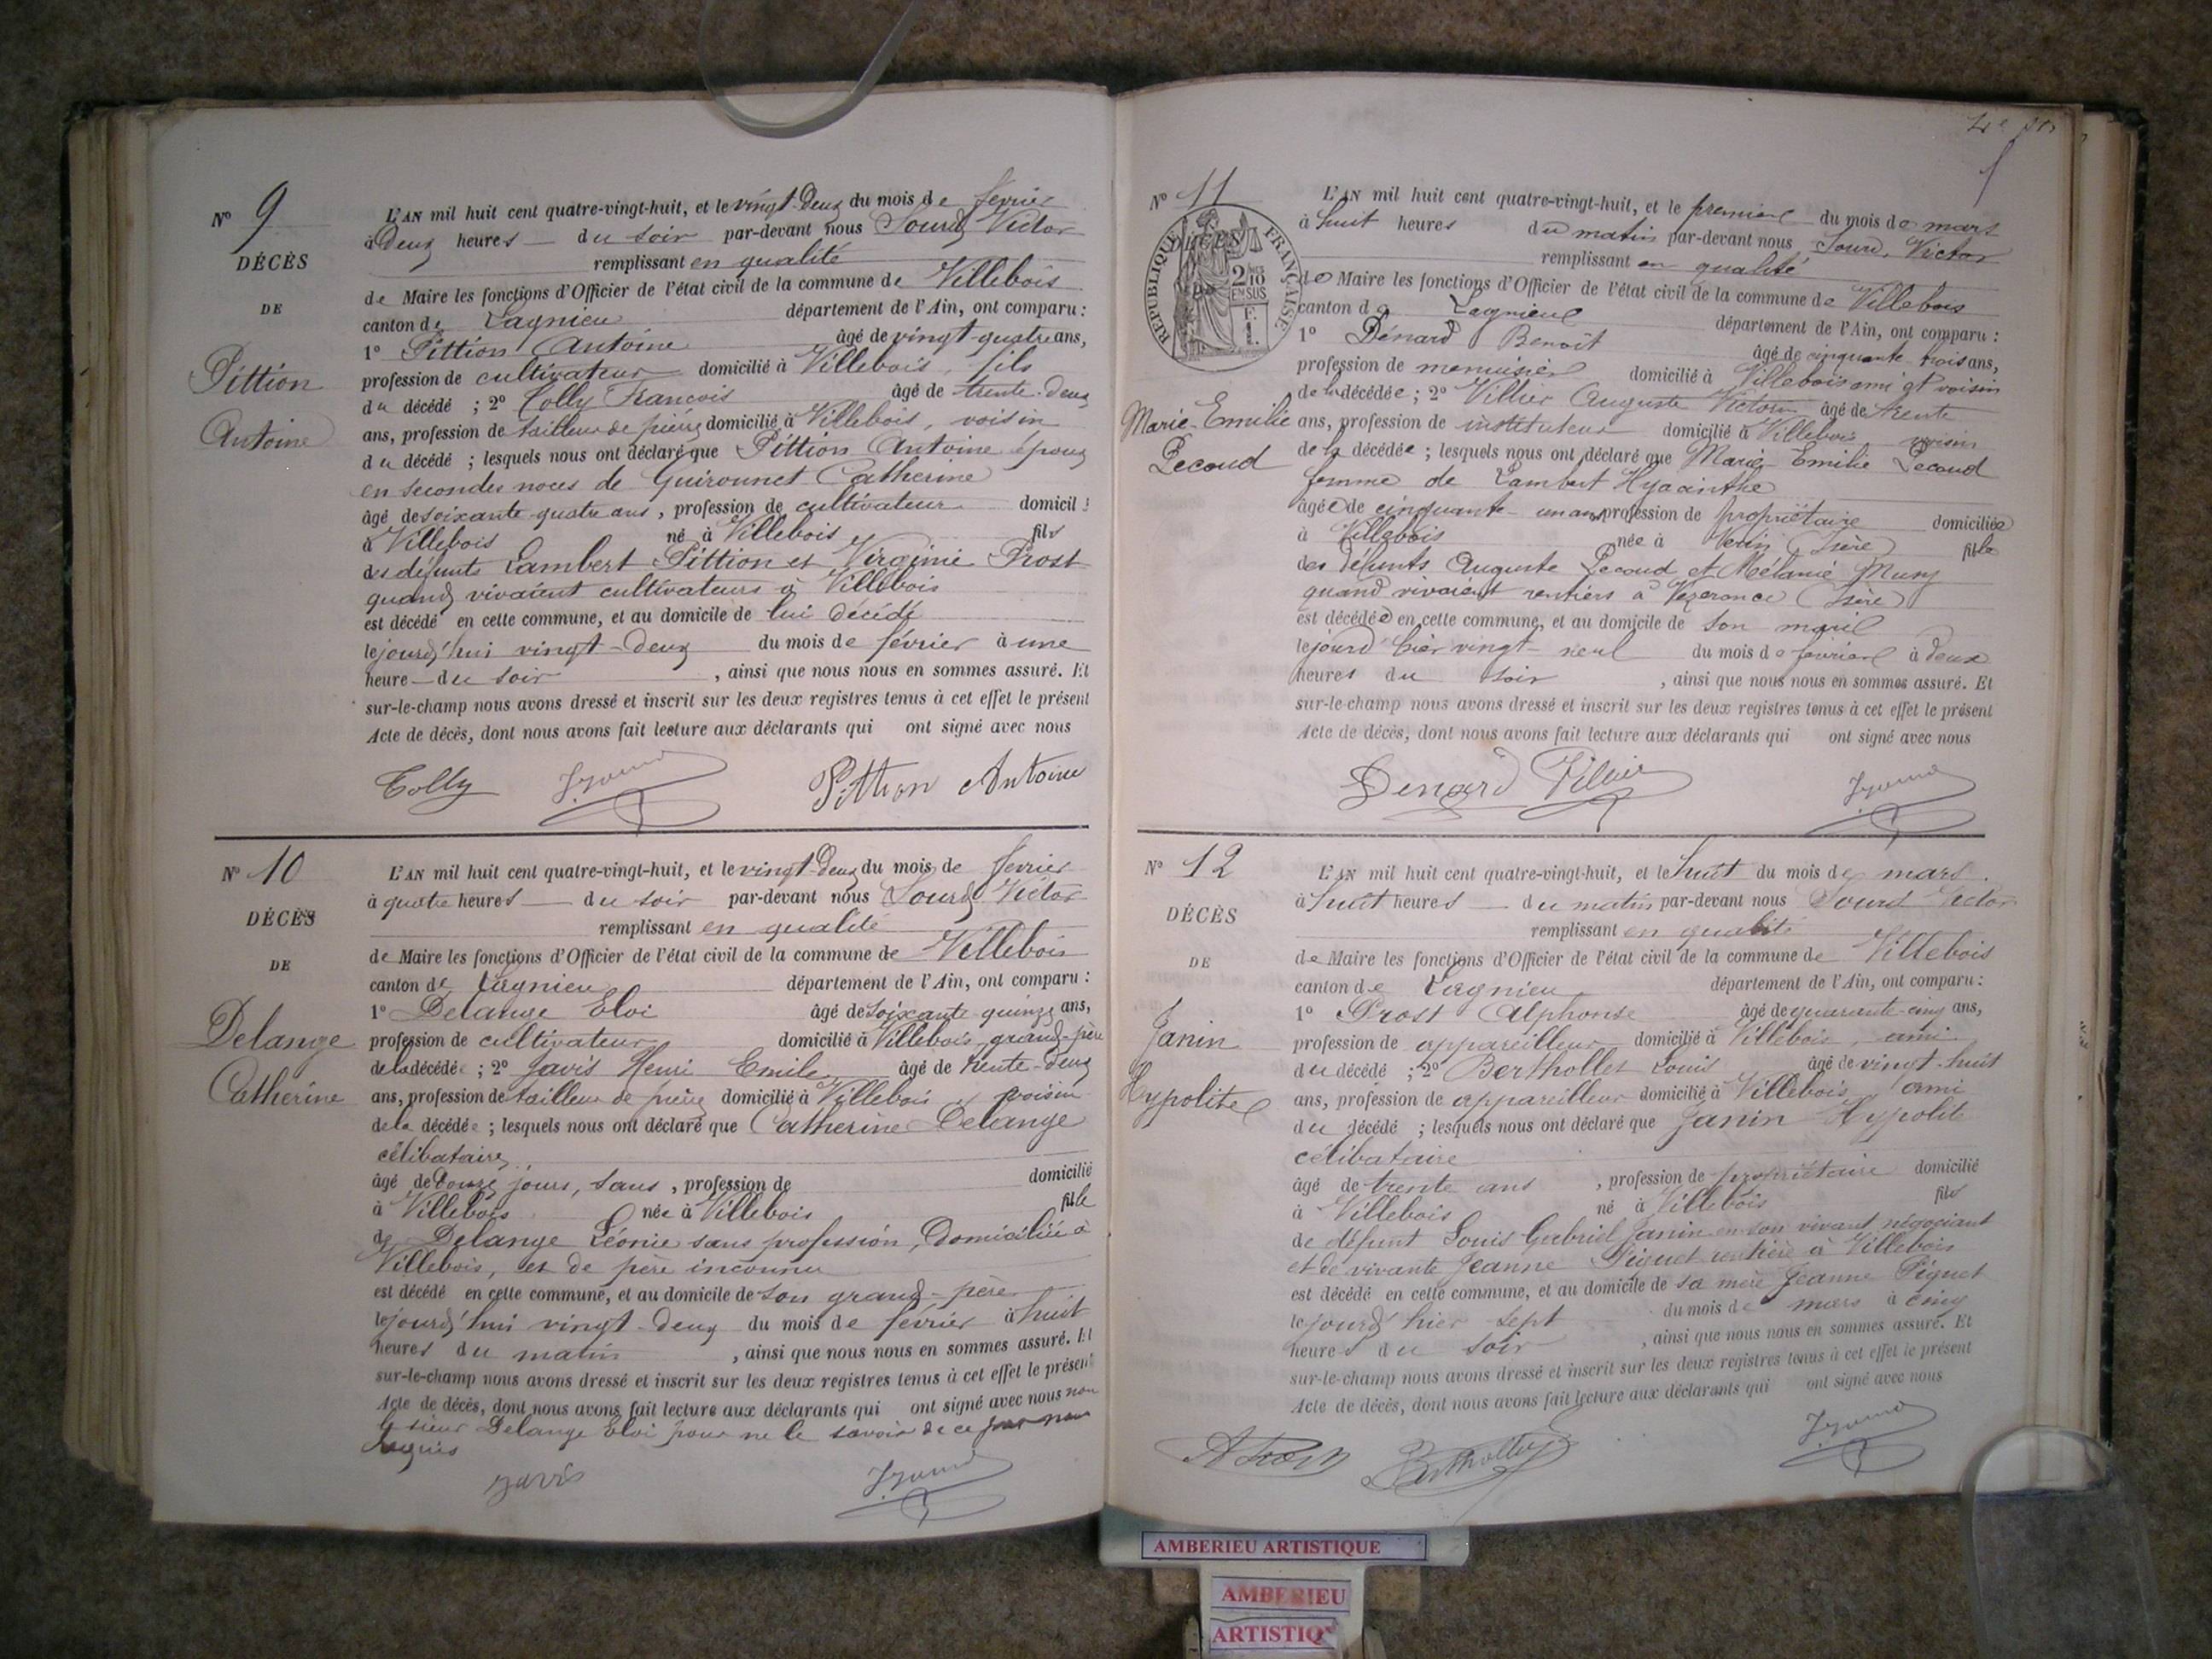 N° 9
DÉCÈS
DE
Pittion
Antoine
L'AN mil huit cent quatre-vingt-huit, et le vingt-deux du mois de fevrier
à Deux heures du soir par-devant nous Sourd Victor
remplissant en qualité
de Maire les fonctions d'Officier de l'état civil de la commune de Villebois
canton de Lagnieu département de l'Ain, ont comparu :
1° Pittion Antoine âgé de vingt-quatre ans,
profession de cultivateur domicilié à Villebois, fils
du décédé ; 2° Colly François âgé de trente-deux
ans, profession de tailleur de pierre domicilié à Villebois, voisin
du décédé ; lesquels nous ont déclaré que Pittion Antoine époux
en secondes noces de Guirounet Catherine
âgé de soixante quatre ans, profession de cultivateur domicil
à Villebois né à Villebois fils
des défunts Lambert Pittion et Virginie Prost
quand vivaient cultivateurs à Villebois
est décédé en cette commune, et au domicile de lui décédé
le jourd'hui vingt-deux du mois de février à une
heure du soir, ainsi que nous nous en sommes assuré. Et
sur-le-champ nous avons dressé et inscrit sur les deux registres tenus à cet effet le présent
Acte de décès, dont nous avons fait lecture aux déclarants qui ont signé avec nous
Colly Pittion Antoine
N° 10
DÉCÈS
DE
Delange
Catherine
L'AN mil huit cent quatre-vingt-huit, et le vingt-deux du mois de fevrier
à quatre heures du soir par-devant nous Sourd Victor
remplissant en qualité
de Maire les fonctions d'Officier de l'état civil de la commune de Villebois
canton de Lagnieu département de l'Ain, ont comparu :
1° Delange Eloi âgé de soixante quinze ans,
profession de cultivateur domicilié à Villebois, grand-père
de la décédée ; 2° Javis Henri Emile âgé de trente-deux
ans, profession de tailleur de pierre domicilié à Villebois voisin
de la décédée ; lesquels nous ont déclaré que Catherine Delange
célibataire
âgé de douze jours, sans, profession de domicilié
à Villebois née à Villebois fille
de Delange Léonie sans profession, domiciliée à
Villebois, et de père inconnu
est décédé en cette commune, et au domicile de son grand-père
le jourd'hui vingt-deux du mois de février à huit
heures du matin, ainsi que nous nous en sommes assuré. Et
sur-le-champ nous avons dressé et inscrit sur les deux registres tenus à cet effet le présent
Acte de décès, dont nous avons fait lecture aux déclarants qui ont signé avec nous non
le sieur Delange Eloi pour ne le savoir de ce
requis
javis
N° 11
REPUBLIQUE FRANÇAISE
2/10 EN SUS
Marie-Emilie
Pecoud
L'AN mil huit cent quatre-vingt-huit, et le premier du mois de mars
à huit heures du matin par-devant nous Sourd, Victor
remplissant en qualité
de Maire les fonctions d'Officier de l'état civil de la commune de Villebois
canton de Lagnieu département de l'Ain, ont comparu :
1° Dénard Benoît âgé de cinquante trois ans,
profession de menuisier domicilié à Villebois ami et voisin
de la décédée ; 2° Villier Auguste Victorin âgé de trente
ans, profession de instituteur domicilié à Villebois voisin
de la décédée ; lesquels nous ont déclaré que Marie-Emilie Pecoud
femme de Lambert Hyacinthe
âgée de cinquante-un ans, profession de propriétaire domiciliée
à Villebois née à (Isère) fille
des défunts Auguste Pecoud et Mélanie Muny
quand vivaient rentiers à Vezeronce (Isère)
est décédée en cette commune, et au domicile de son mari
le jourd'hier vingt-neuf du mois de fevrier à deux
heures du soir, ainsi que nous nous en sommes assuré. Et
sur-le-champ nous avons dressé et inscrit sur les deux registres tenus à cet effet le présent
Acte de décès, dont nous avons fait lecture aux déclarants qui ont signé avec nous
Denard Villier
N° 12
DÉCÈS
DE
Janin
Hypolite
L'AN mil huit cent quatre-vingt-huit, et le huit du mois de mars.
à huit heures du matin par-devant nous Sourd Victor
remplissant en qualité
de Maire les fonctions d'Officier de l'état civil de la commune de Villebois
canton de Lagnieu département de l'Ain, ont comparu :
1° Prost Alphonse âgé de quarante-cinq ans,
profession de appareilleur domicilié à Villebois, ami
du décédé ; 2° Berthollet Louis âgé de vingt-huit
ans, profession de appareilleur domicilié à Villebois, ami
du décédé ; lesquels nous ont déclaré que Janin Hypolite
célibataire
âgé de trente ans, profession de propriétaire domicilié
à Villebois né à Villebois fils
de défunt Louis Gabriel Janin en son vivant négociant
et de vivante Jeanne Piquet rentière à Villebois
est décédé en cette commune, et au domicile de sa mère Jeanne Piquet
le jourd'hier sept du mois de mars à cinq
heures du soir, ainsi que nous nous en sommes assuré. Et
sur-le-champ nous avons dressé et inscrit sur les deux registres tenus à cet effet le présent
Acte de décès, dont nous avons fait lecture aux déclarants qui ont signé avec nous
A Prost Berthollet
AMBERIEU ARTISTIQUE
AMBERIEU
ARTISTIQ